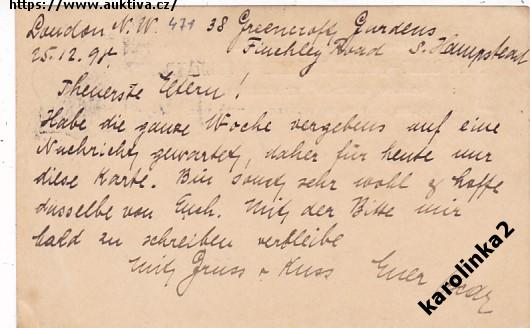 https://www.auktiva.cz/
London N.W. 471 38 Greencroft Gardens
25.12.97 Finchley Road S. Hampstead
Theuerste Eltern!
Habe die ganze Woche vergebens auf eine
Nachricht gewartet, daher für heute nur
diese Karte. Bin sonst sehr wohl & hoffe
dasselbe von Euch. Mit der Bitte mir
bald zu schreiben verbleibe
Mit Gruss & Kuss Euer
karolinka2